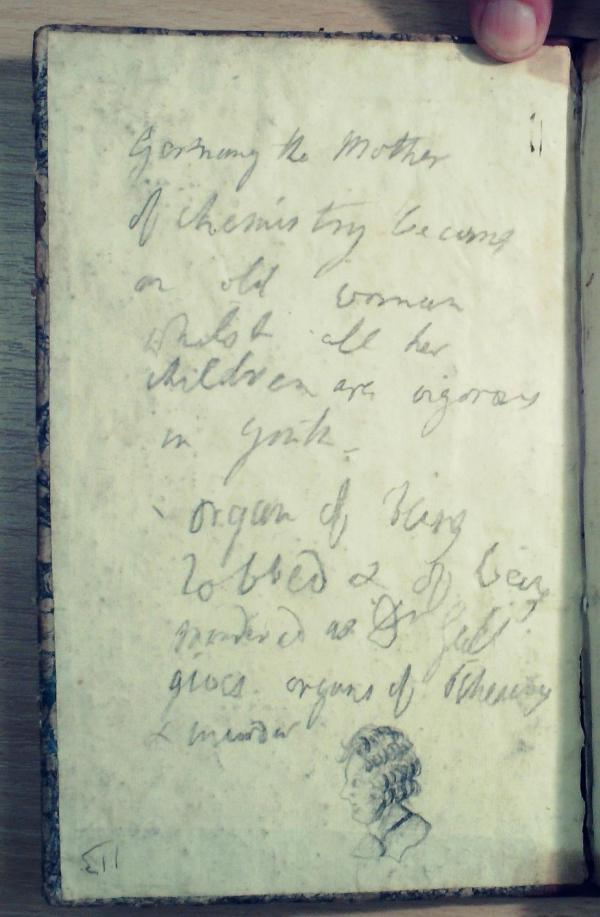 Germany the Mother
of chemistry become
an old woman
whilst all her
children are vigorous
in youth.
organ of being
robbed & of being
murdered as Dr Gall
gives organs of Thieving
& murder
11